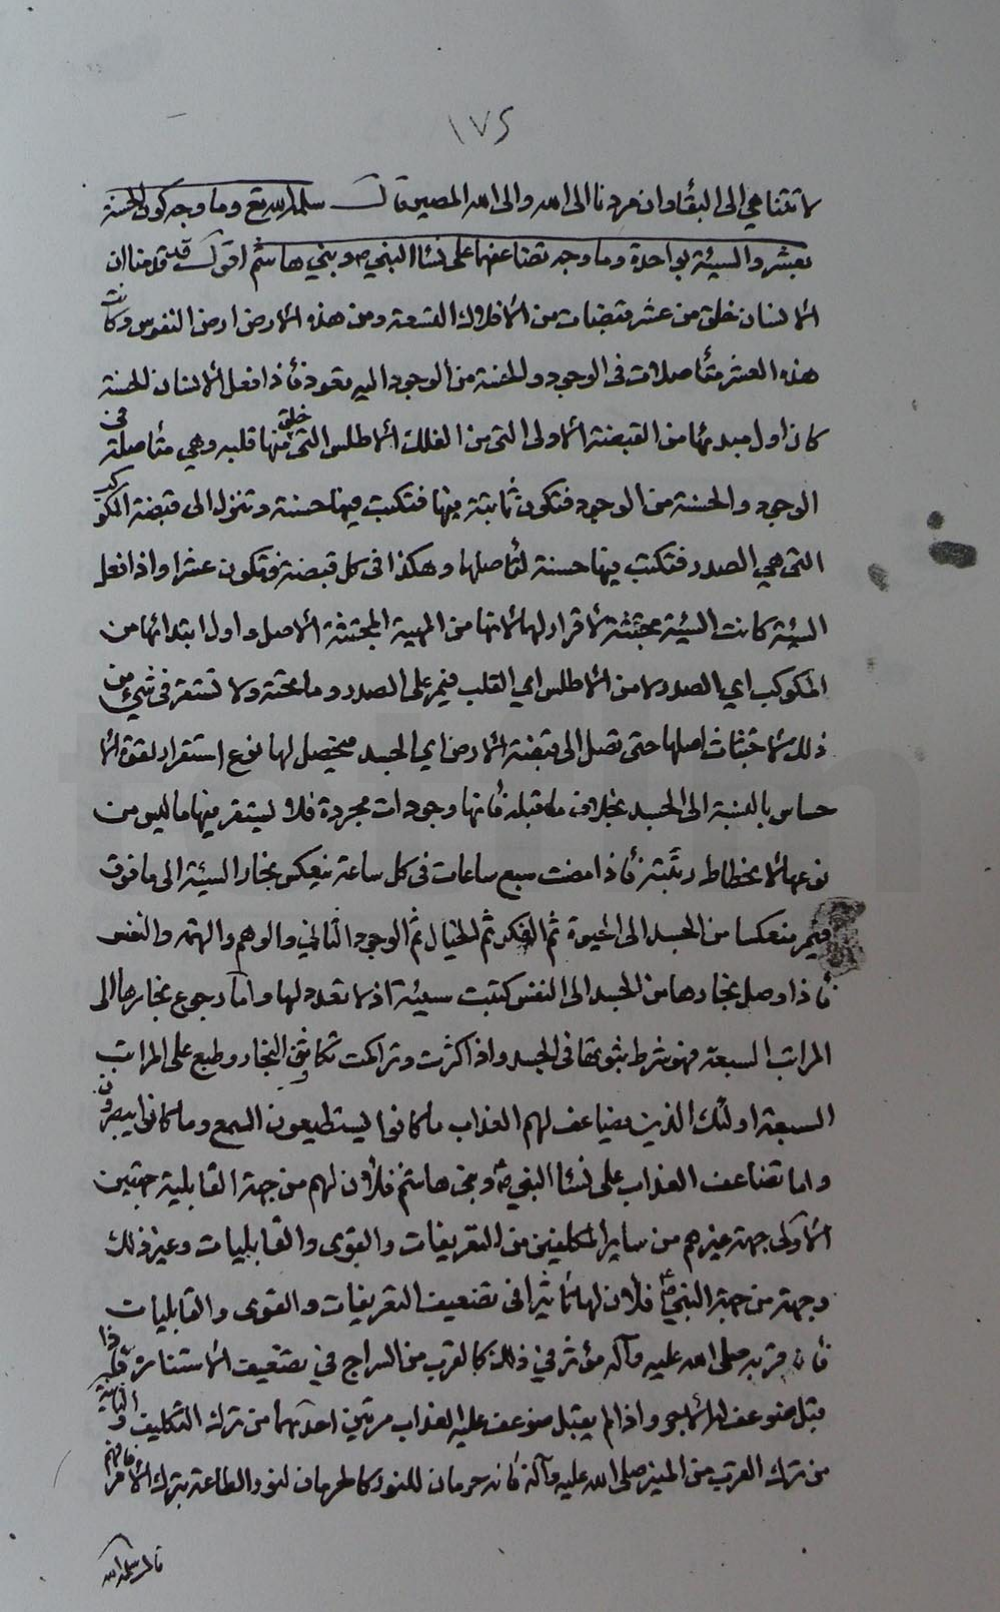 ١٧٤
لا تتناهي الى البقاء وان مردنا الى الله والى الله المصير قال سلمه الله تع وما وجه كون الحسنة
بعشر والسيئة بواحدة وما وجه تضاعفها على نساء النبي ص وبني هاشم اقول قد قدمنا ان
الانسان خلق من عشر قبضات من الافلاك التسعة ومن هذه الارض ارض النفوس وكانت
هذه العشر متأصلات في الوجود والحسنة من الوجود اليه تعود فأذا فعل الانسان الحسنة
كان اول مبدئها من القبضة الاولى التي من الفلك الاطلس التي خلق منها قلبه وهي متأصلة في
الوجود والحسنة من الوجود فتكون ثابتة فيها فتكتب فيها حسنة وتنزل الى قبضة المكوكب
التي هي الصدر فتكتب فيها حسنة لتأصلها وهكذا في كل قبضة فتكون عشرا واذا فعل
السيئة كانت السيئة مجتثة لا قرار لها لانها من المهية المجتثة الاصل واول ابتدائها من
المكوكب اي الصدر لا من الاطلس اي القلب فيمر على الصدر وما تحته ولا تستقر في شيء من
ذلك لاجتثاث اصلها حتى تصل الى قبضة الارض اي الجسد فيحصل لها نوع استقرار لقوة الا
حساس بالنسبة الى الجسد بخلاف ما قبله فأنها وجودات مجردة فلا يستقر فيها ما ليس من
نوعها لانحطاط رتبته فأذا مضت سبع ساعات في كل ساعة ينعكس بخار السيئة الى ما فوق
فيمر منعكسا من الجسد الى الحيوة ثم الفكر ثم الخيال ثم الوجود الثاني والوهم والهمة والنفس
فأذا وصل بخارها من الجسد الى النفس كتبت سيئة اذ لا تعدد لها واما رجوع بخارها الى
المراتب السبعة فهو شرط ثبوتها في الجسد واذا كثرت وتراكمت تكاثف البخار وطبع على المراتب
السبعة اولئك الذين يضاعف لهم العذاب ما كانوا يستطيعون السمع وما كانوا يبصرون
واما تضاعف العذاب على نساء النبي ص وبني هاشم فلأن لهم من جهة القابلية جهتين
الاولى جهة غيرهم من ساير المكلفين من التعريفات والقوى والقابليات وغير ذلك
وجهة من جهة النبي ص فلأن لها تأثيرا في تضعيف التعريفات والقوى والقابليات
فأن قربه صلى الله عليه وآله مؤثر في ذلك كالقرب من السراج في تضعيف الاستنارة فأذا
قبل ضوعف له الاجر واذا لم يقبل ضوعف عليه العذاب مرتين احدهما من ترك التكليف والثانية
من ترك القرب من المنير صلى الله عليه وآله فأنه حرمان للنور كالحرمان لنور الطاعة بترك الامر فافهم
قال سلمه الله